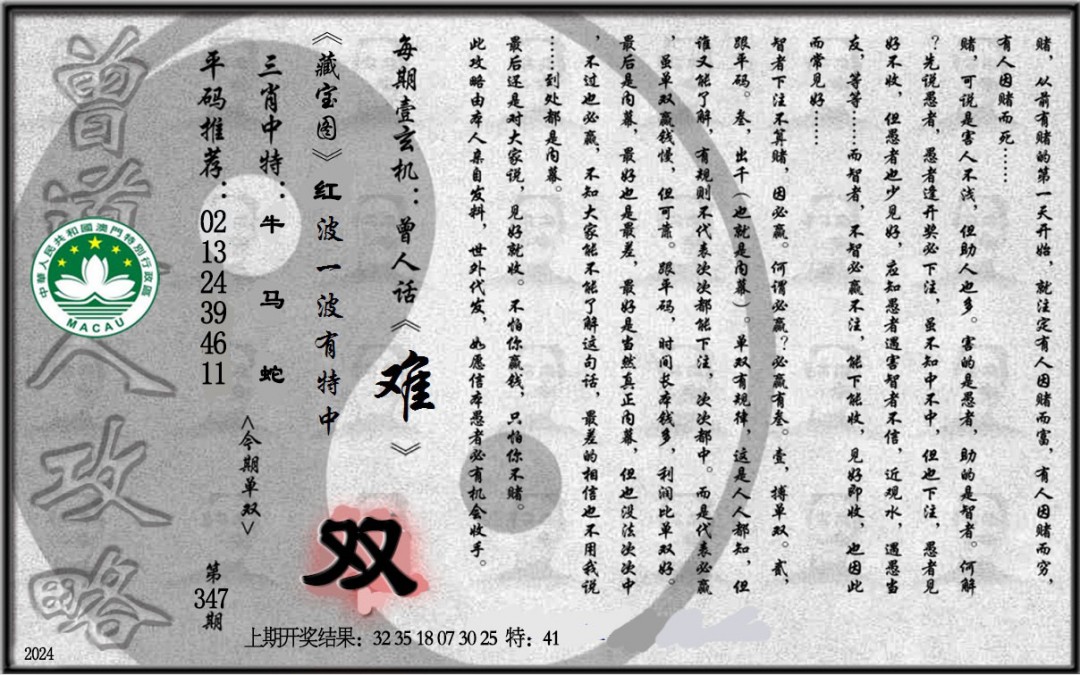 赌，从前有赌的第一天开始，就注定有人因赌而富，有人因赌而穷，
有人因赌而死……
赌，可说是害人不浅，但助人也多。害的是愚者，助的是智者。何解
？先说愚者，愚者逢开奖必下注，虽不知中不中，但也下注，愚者见
好不收，但愚者也少见好，应知愚者遇害智者不信，近观水，遇愚当
友，等等……而智者，不智必赢不注，能下能收，见好即收，也因此
而常见好……
智者下注不算赌，因必赢。何谓必赢？必赢有叁。壹，搏单双。贰，
跟平码。叁，出千（也就是内幕）。单双有规律，这是人人都知，但
谁又能了解，有规则不代表次次都能下注，次次都中。而是代表必赢
，虽单双赢钱慢，但可靠。跟平码，时间长本钱多，利润比单双好。
最后是内幕，最好也是最差，最好是当然真正内幕，但也没法次次中
，不过也必赢，不知大家能不能了解这句话，最差的相信也不用我说
……到处都是内幕。
最后还是对大家说，见好就收。不怕你赢钱，只怕你不赌。
此攻略由本人亲自发料，世外代发，如愿信本愚者必有机会收手。
每期壹玄机：曾人话《难》
《藏宝图》红波一波有特中
双
三肖中特：牛 马 蛇
<今期单双>
平码推荐：02 13 24 39 46 11
第347期
曾道人攻略
中華人民共和國澳門特別行政區
MACAU
上期开奖结果：32 35 18 07 30 25 特：41
2024